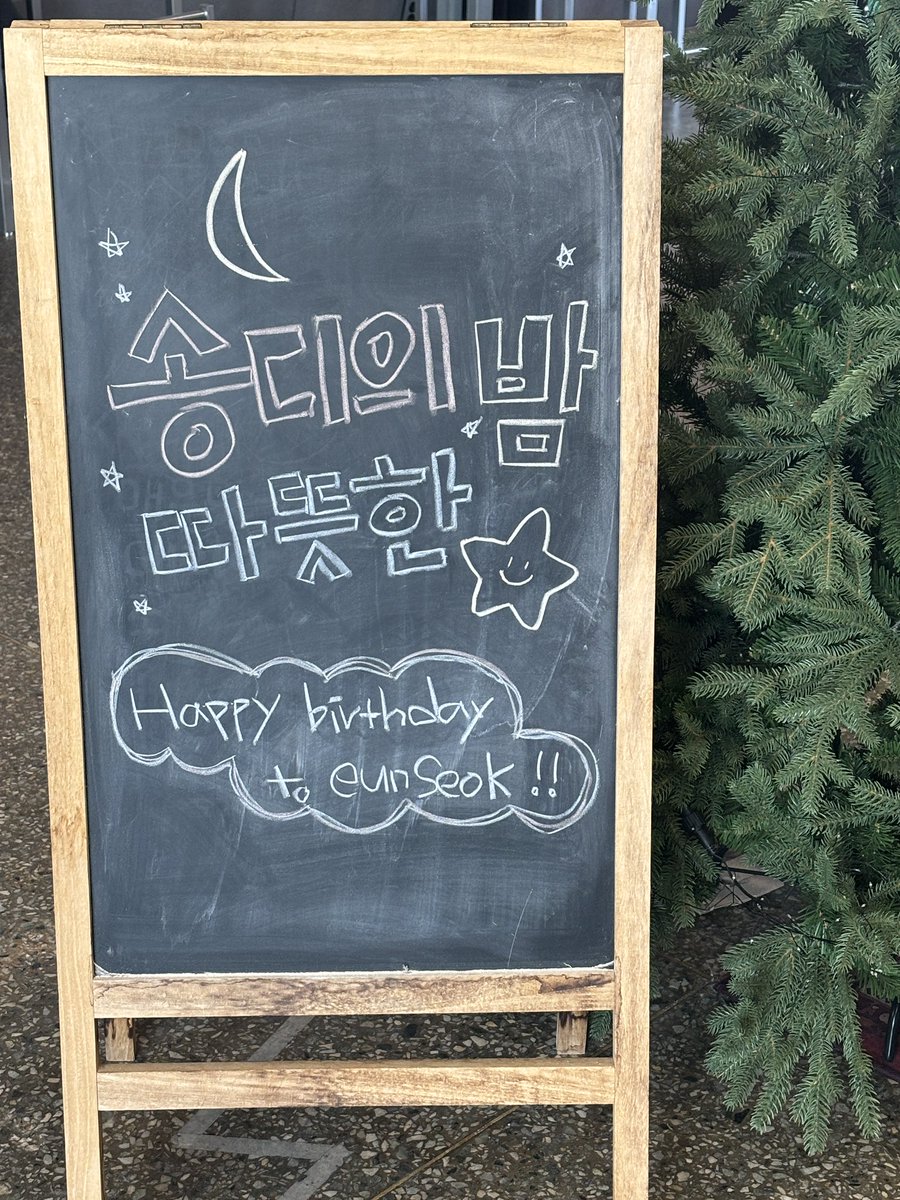 송디의 밤
따뜻한
Happy birthday
to eunseok !!